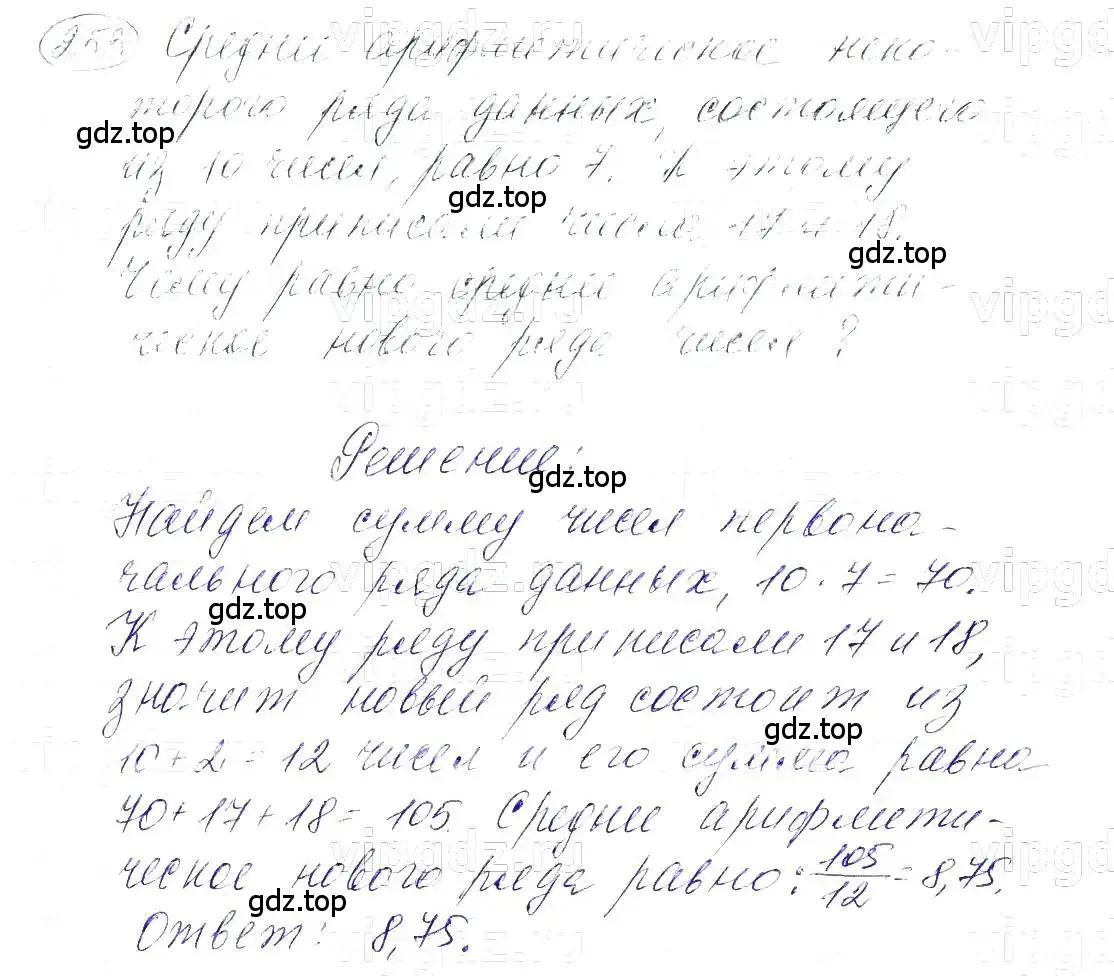 253 Средние арифметическое неко-
торого ряда данных, состоящего
из 10 чисел, равно 7. К этому
ряду приписали числа 17 и 18.
Чему равно средние арифмети-
ческое нового ряда чисел?
Решение:
Найдем сумму чисел первона-
чального ряда данных, 10 · 7 = 70.
К этому ряду приписали 17 и 18,
значит новый ряд состоит из
10 + 2 = 12 чисел и его сумма равна
70 + 17 + 18 = 105. Средние арифмети-
ческое нового ряда равно: 105/12 = 8,75.
Ответ: 8,75.
gdz.top
gdz.top
gdz.top
gdz.top
gdz.top
gdz.top
gdz.top